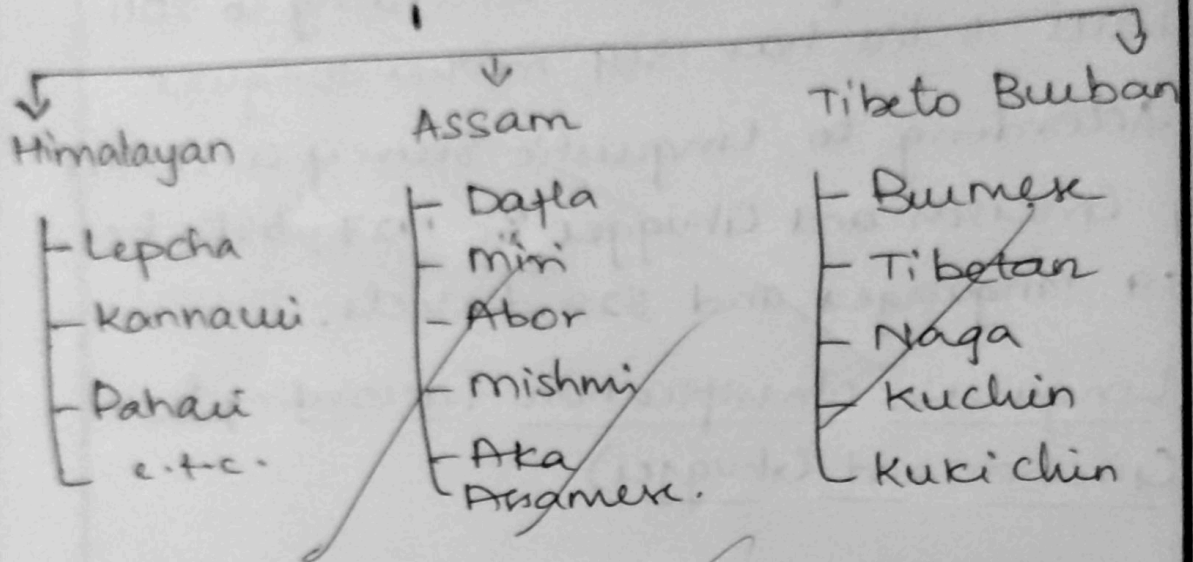 Himalayan
Lepcha
Kannauri
Pahari
e.t.c.
Assam
Dafla
miri
Abor
mishmi
Aka
Assamese.
Tibeto Burban
Burmese
Tibetan
Naga
Kuchin
Kuki chin